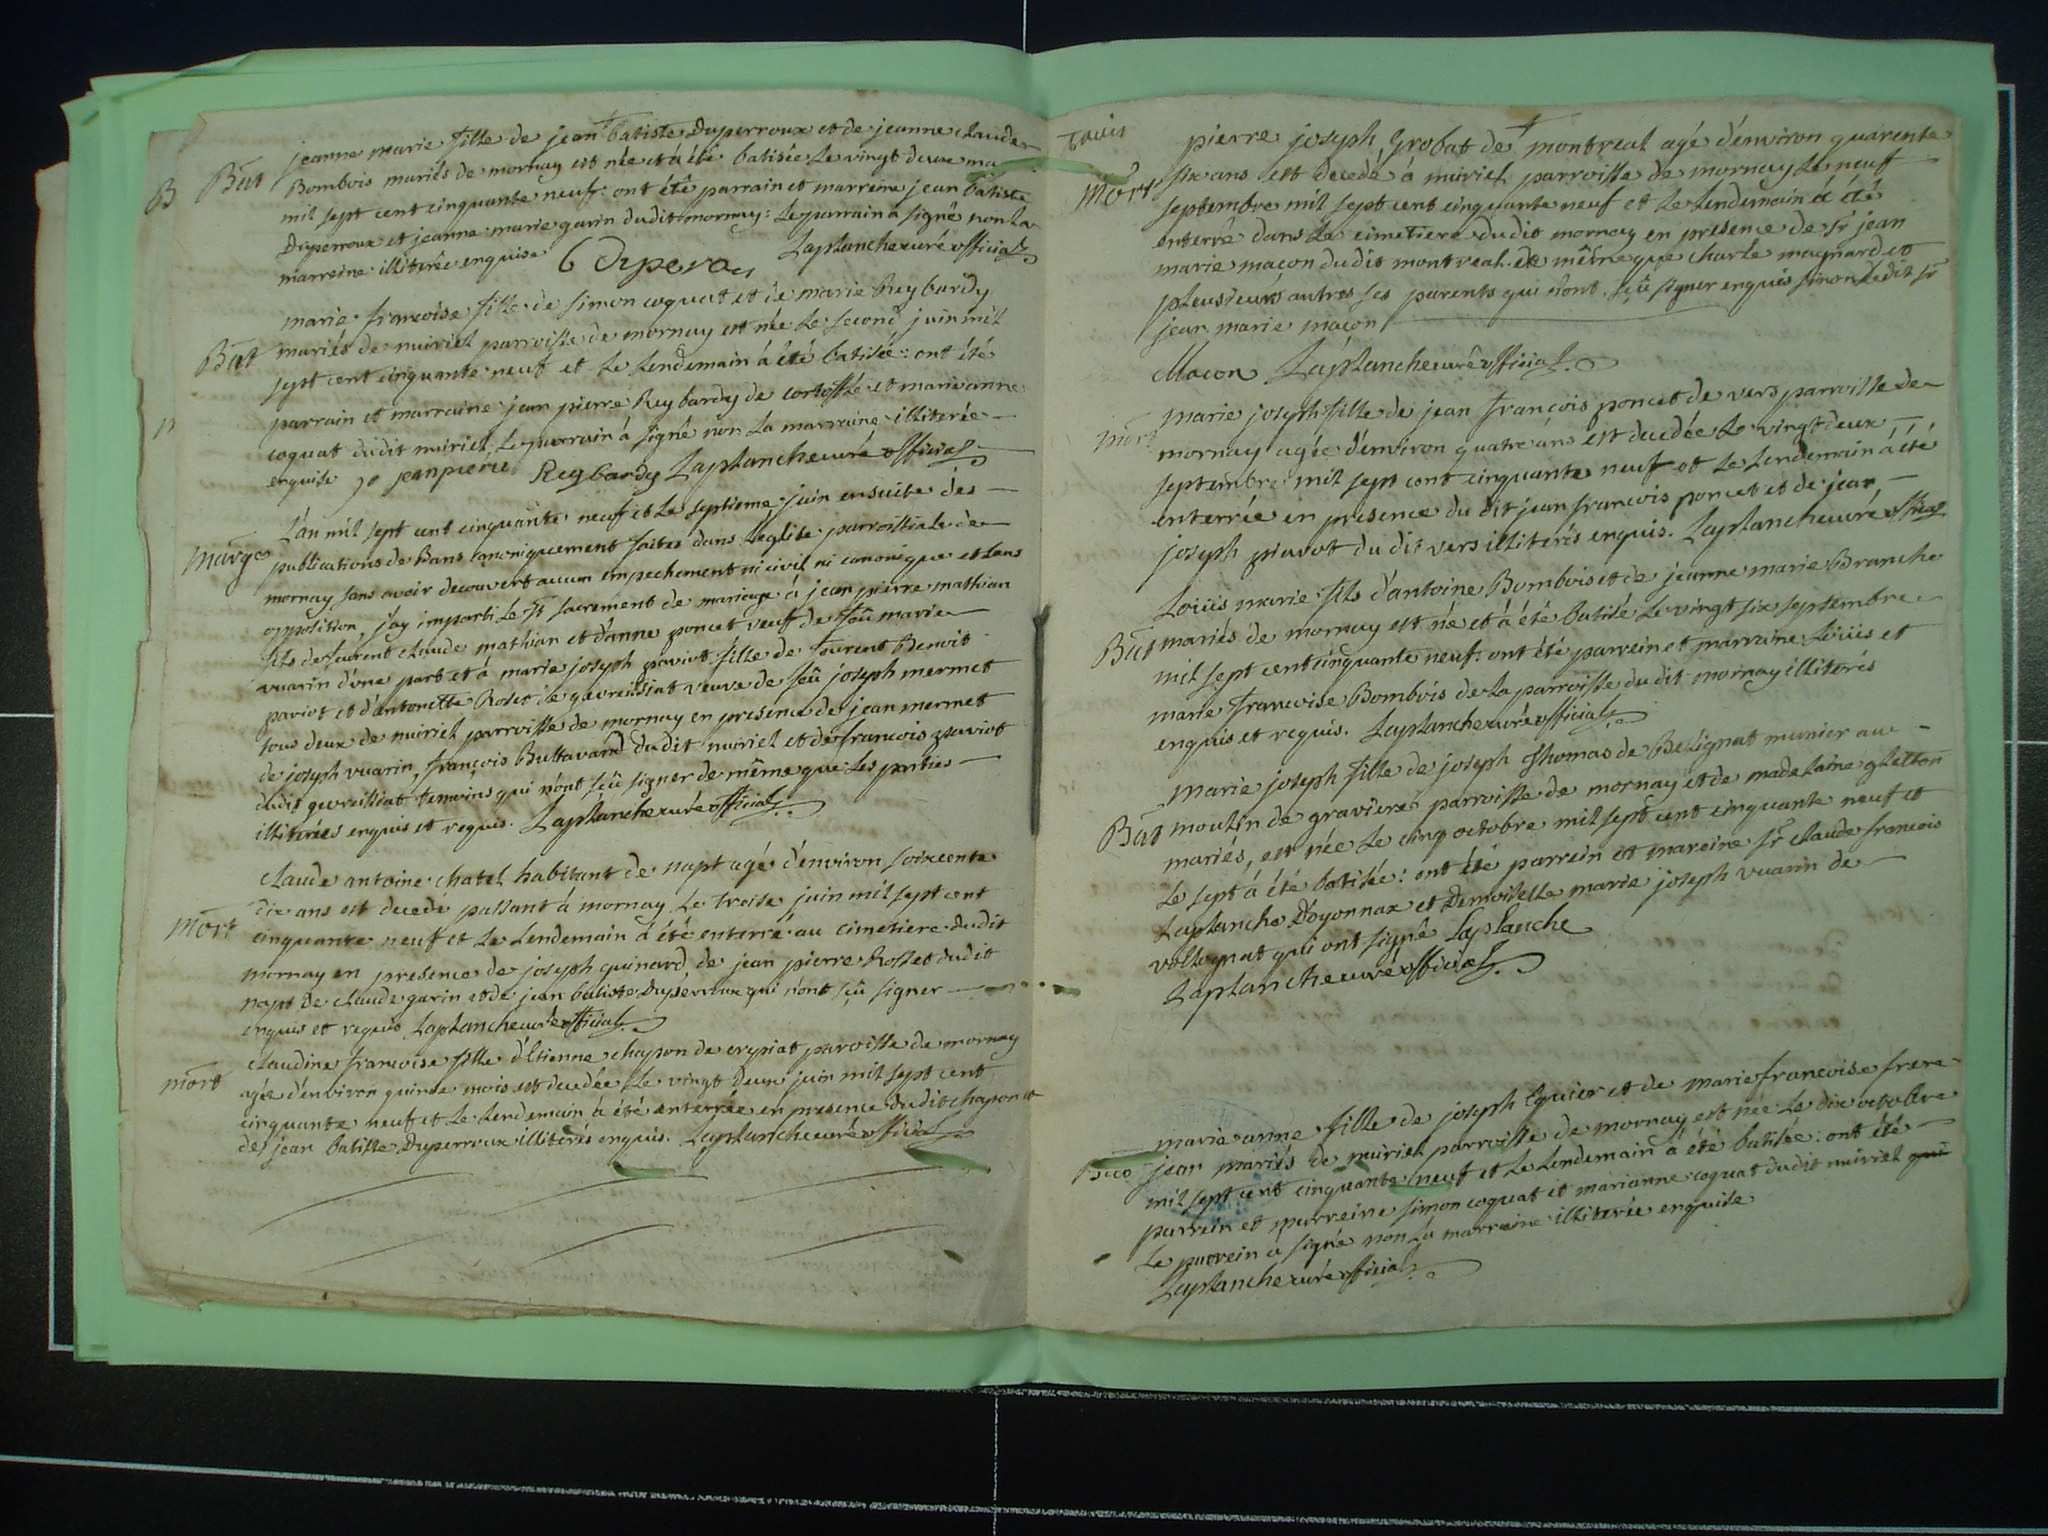 B
Bat
jeanne marie fille de jean batiste Duperroux et de jeanne claude
Bombois mariés de mornay est née et à été batisée le vingt deux ma
mil sept cent cinquante neuf: ont été parrain et marreine jean batiste
Duperroux et jeanne marie garin dudit mornay: le parrain a signé non la
marreine illiterée enquise Laplanche curé official
Bat
marie francoise fille de simon coquat et de marie Reybardy
mariés de muriel parroisse de mornay est née le second juin mil
sept cent cinquante neuf et le lendemain á été batisée: ont été
parrain et marraine jean pierre Reybardy de et marianne
coquat dudit muriel, le parrain á signé non la marraine illiterée
enquise jean pierre Reybardy Laplanche curé official
marge
L'an mil sept cent cinquante neuf et le septieme juin ensuite des
publications de Bans canoniquement faites dans l'église parroissiale de
mornay sans avoir decouvert aucun empechement ni civil ni canonique et sans
opposition, j'ay imparti le st sacrement de mariage á jean pierre mathian
fils de laurent claude mathian et d'anne poncet veuf de feüe marie
vuarin d'une part et á marie joseph paviot fille de laurent Benoit
paviot et d'antonette Rolet de gevreissiat veuve de feû joseph mermet
tous deux de muriel parroisse de mornay en presence de jean mermet
de joseph vuarin, françois Buttavand dudit muriel et de francois paviot
dudit gevreissiat temoins qui n'ont sçû signer de même que les parties
illiterées enquis et requis. Laplanche curé official
mort
claude antoine chatel habitant de napt agé d'environ soixcente
dix ans est decedé passant á mornay le treise juin mil sept cent
cinquante neuf et le lendemain á été enterré au cimetiere dudit
mornay en presence de joseph guinard, de jean pierre Rosset dudit
napt de claude garin et de jean batiste Duperroux qui n'ont sçû signer
enquis et requis Laplanche curé official
mort
claudine francoise fille d'Etienne chapon de crypiat parroisse de mornay
agée d'environ quinse mois est decedée le vingt deux juin mil sept cent
cinquante neuf et le lendemain á été enterrée en presence dudit chapon et
de jean batiste Duperroux illiterés enquis. Laplanche curé official
mort
pierre joseph Grobat de montreal agé d'environ quarente
six ans est decedé á muriel parroisse de mornay le neuf
septembre mil sept cent cinquante neuf et le lendemain á été
enterré dans le cimetiere dudit mornay en presence de sr jean
marie maçon dudit montreal de même que charle maynard et
pleusieurs autres ses parents qui n'ont sçû signer enquis sinon ledit sr
jean marie maçon
Macon Laplanche curé official
mort
marie joseph fille de jean francois poncet de vers parroisse de
mornay agée d'environ quatre ans est decedée le vingt deux
septembre mil sept cent cinquante neuf et le lendemain á été
enterrée en presence du dit jean francois poncet et de jean
joseph paviot du dit vers illiterés enquis. Laplanche curé official
Bat
Loüis marie fils d'antoine Bombois et de jeanne marie Branche
mariés de mornay est né et á été batisé le vingt six septembre
mil sept cent cinquante neuf: ont été parrein et marraine loüis et
marie francoise Bombois de la parroisse dudit mornay illiterés
enquis et requis. Laplanche curé official
Bat
marie joseph fille de joseph Thomas de Belignat munier au
moulin de graviere parroisse de mornay et de madelaine gletton
mariés, est née le cinq octobre mil sept cent cinquante neuf et
le sept á été batisée: ont été parrein et mareine sr claude francois
Laplanche D'oyonnax et Demoiselle marie joseph vuarin de
volognat qui ont signé Laplanche
Laplanche curé official
marie anne fille de joseph Eguier et de marie francoise frere
jean mariés de muriel parroisse de mornay est née le dix octobre
mil sept cent cinquante neuf et le lendemain á été batisée: ont été
parrein et marreine simon coquat et marianne coquat dudit muriel qui
le parrein a signé non la marraine illiterée enquise
Laplanche curé official